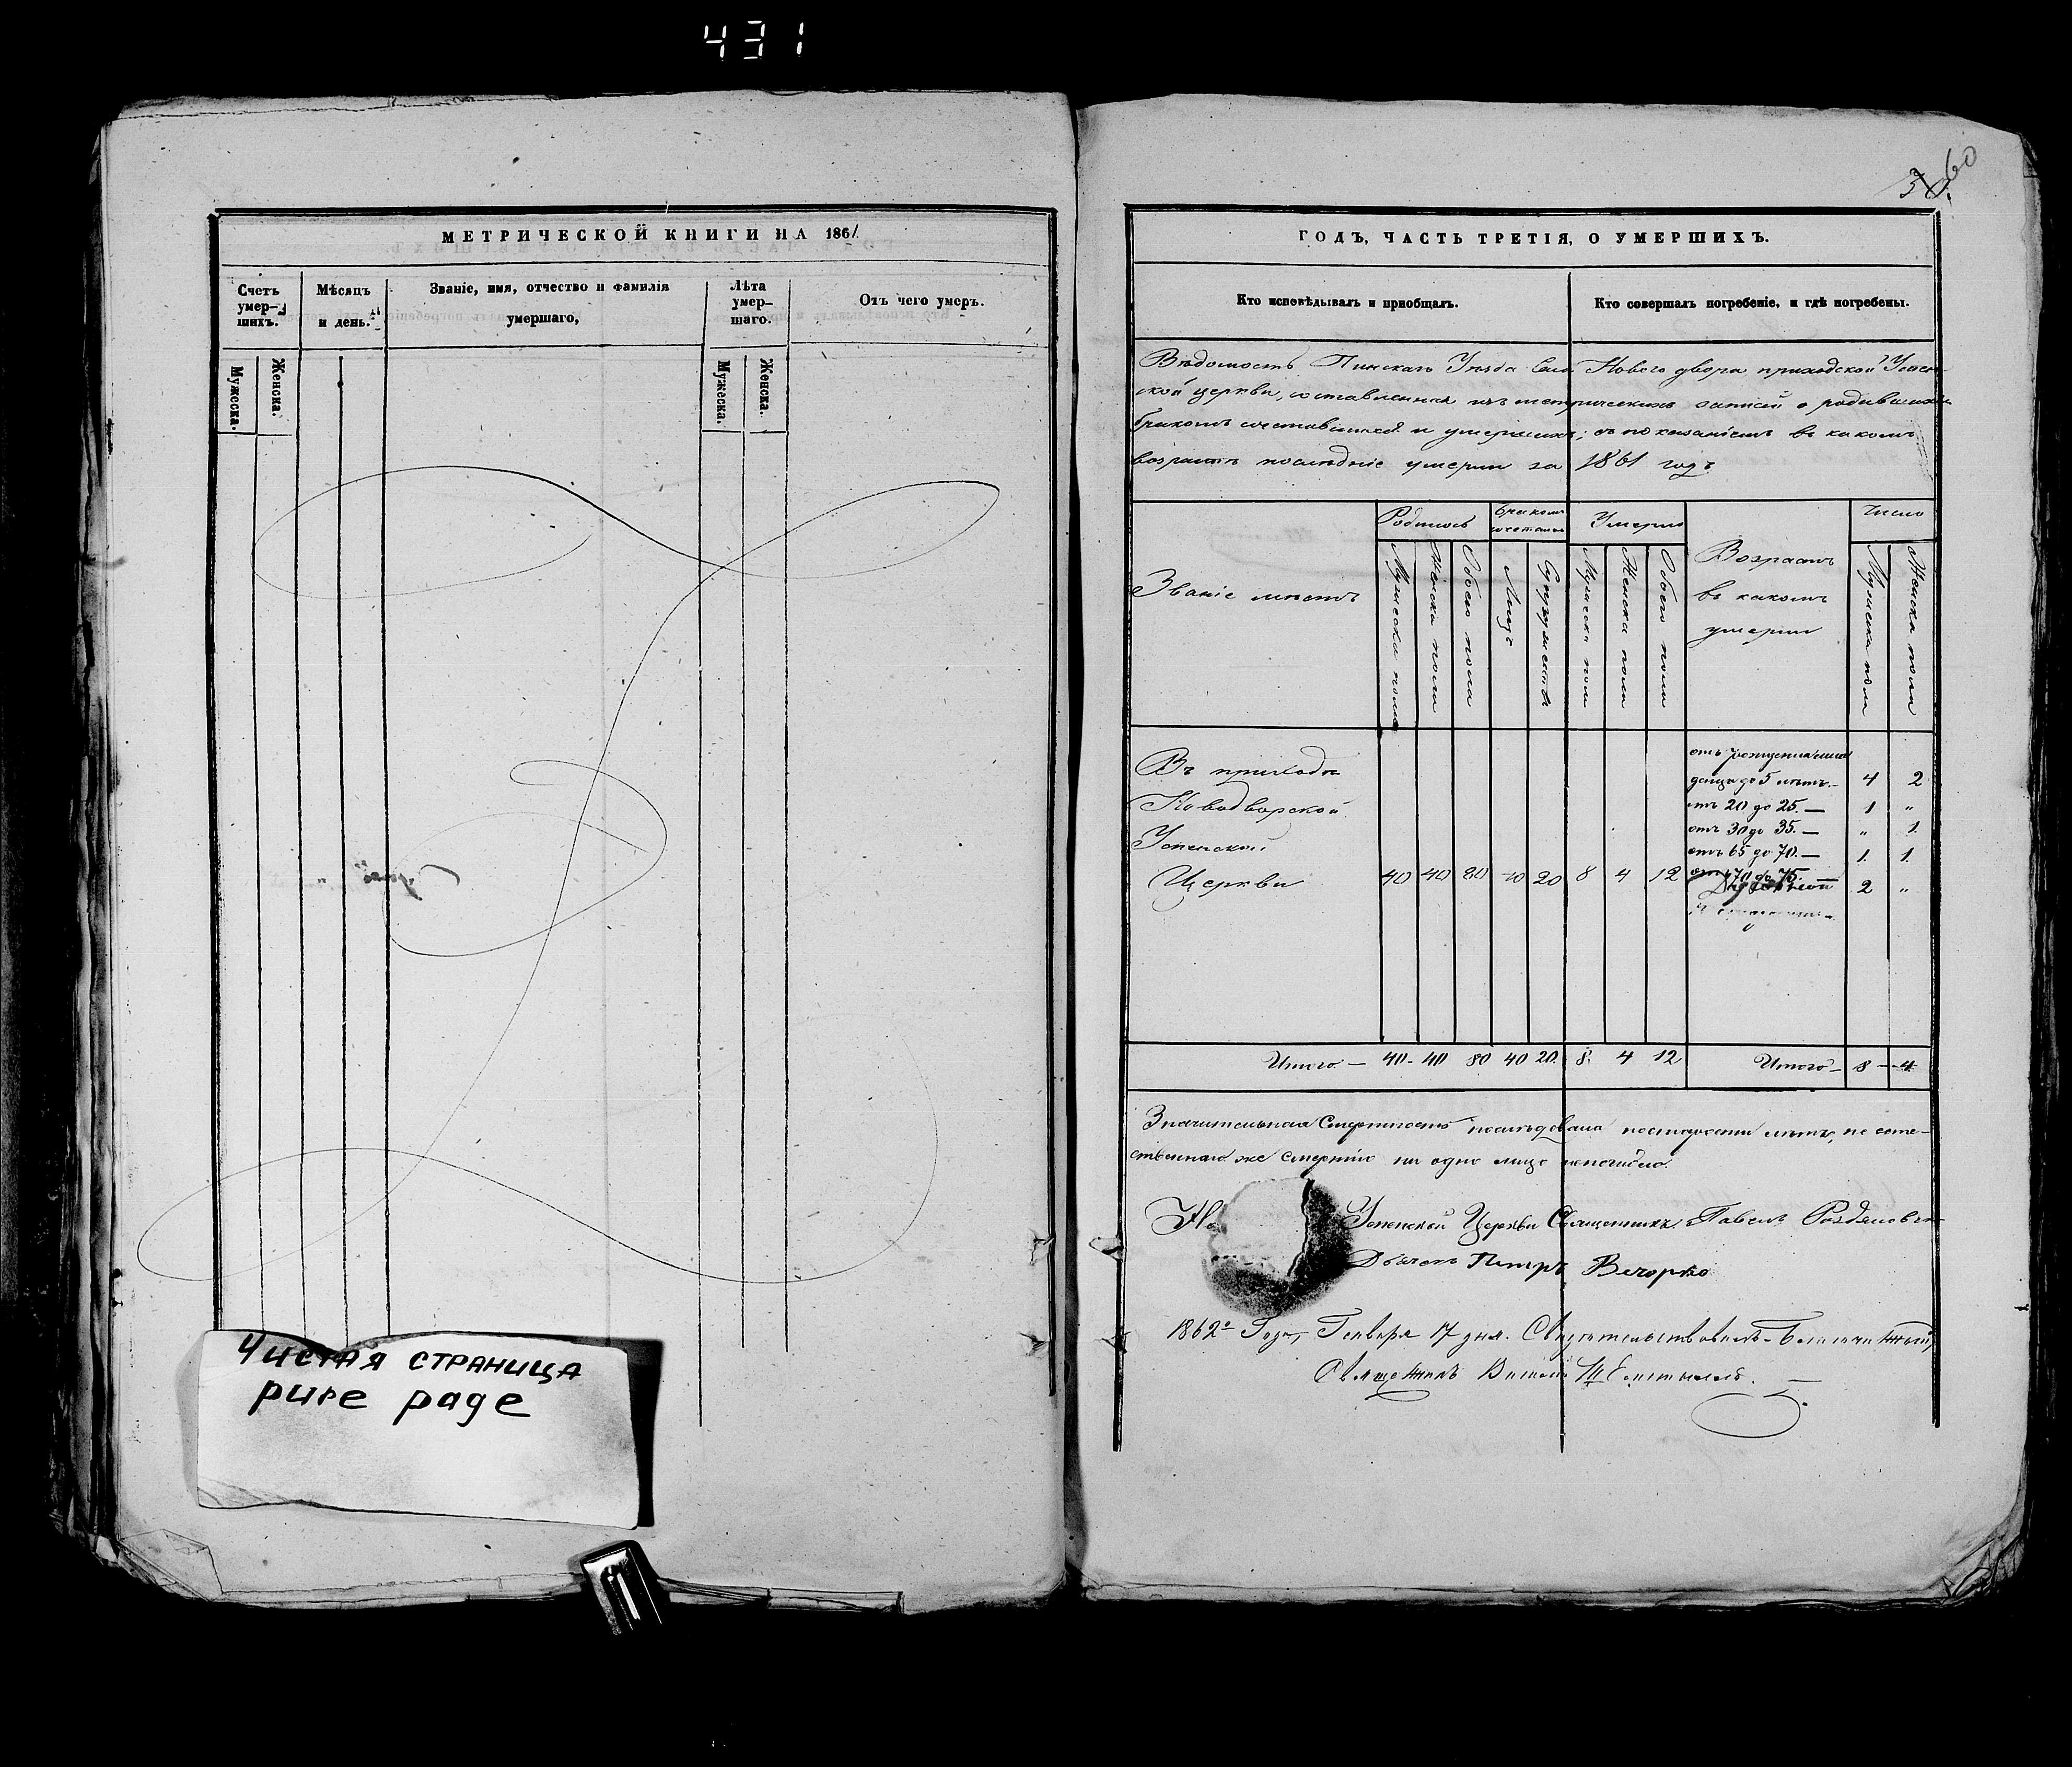 431
МЕТРИЧЕСКОЙ КНИГИ НА 1861
Счетъ умер-шихъ.
Мѣсяцъ и день.
Званіе, имя, отчество и фамилія умершаго,
Лѣта умер-шаго.
Отъ чего умеръ.
Мужеска.
Женска.
Мужеска.
Женска.
Чистая страница
pure page
60
30.
ГОДЪ, ЧАСТЬ ТРЕТІЯ, О УМЕРШИХЪ.
Кто исповѣдывалъ и пріобщалъ.
Кто совершалъ погребеніе, и гдѣ погребены.
Вѣдомость Пинскаго Уѣзда Села Нового двора приходской Успен-
ской церкви, составленная изъ метрическихъ записей о родившихся
бракомъ сочетавшихся и умершихъ; съ показаніемъ въ какомъ
возрастѣ послѣдніе умерли за 1861 годъ
Званіе мѣстъ
Родилось
Бракомъ сочеталось
Умерло
Возрастъ въ какомъ умерли
Число
Мужеска пола
Женска пола
Обоего пола
Лицъ
Супружествъ
Мужеска пола
Женска пола
Обоего пола
Мужеска пола
Женска пола
Въ приходѣ
Новодворской
Успенской
Церкви 40 40 80 40 20 8 4 12
до 5 лѣтъ. 4 2
отъ 20 до 25. — 1 "
отъ 30 до 35. — " 1.
отъ 65 до 70. — 1. 1.
отъ 70 до 75. — 2 "
Итого — 40 - 40 80 40 20. 8. 4 12 Итого — 8 — 4.
Значительная Смертность послѣдовала по старости лѣтъ, не есте-
ственною же Смертію ни одно лице не погибло.
Успенской Церкви Священникъ Павелъ
Дьячокъ Петръ Вечорко
1862го Года, Генваря 17 дня. Свидѣтельствовалъ Благочинный,
Священникъ